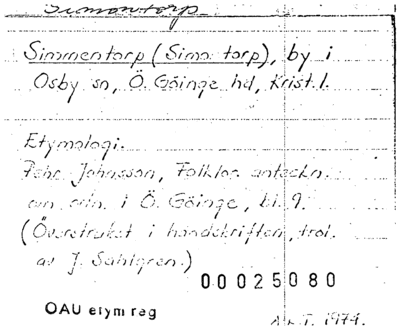 Simontorp
Simmentorp (Simo torp), by i
Osby sn, Ö. Göinge hd, Krist. l.
Etymologi.
Pehr Johnsson, Folklor. anteckn.
i Ö. Göinge, bl. 9.
(Överstruket i handskriften, trol.
av J. Sahlgren.)
00025080
OAU etym reg
1974.